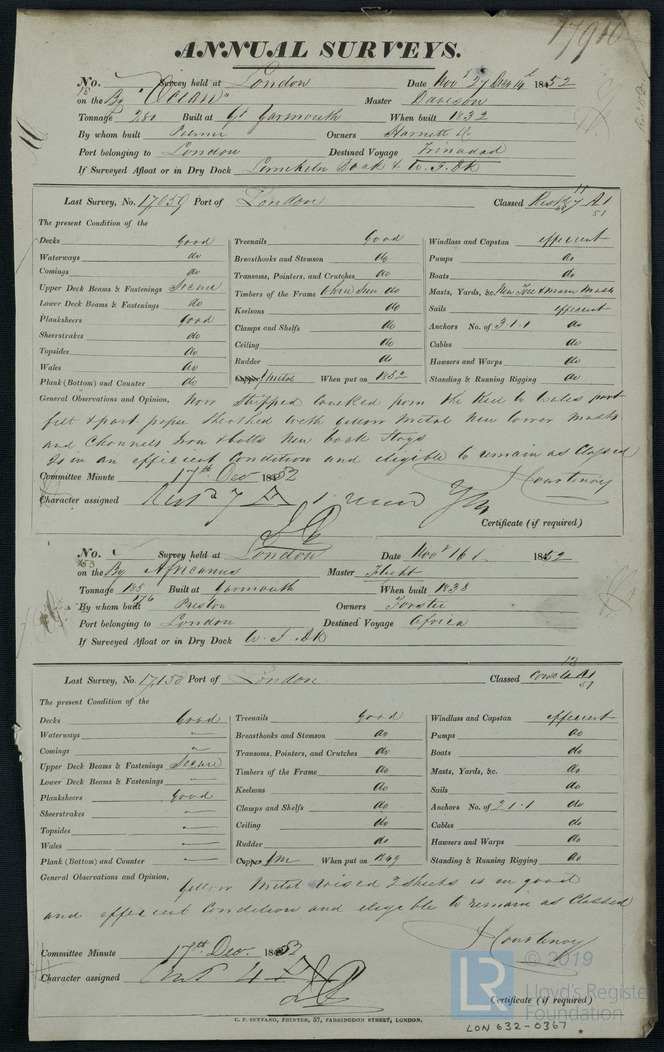 17910
ANNUAL SURVEYS.
No. Survey held at London Date Novr 27 Decr 14 1852
on the Bg "Ocean" Master Davison
Tonnage 280 Built at Gt Yarmouth When built 1832
By whom built Palmer Owners Harnett &c
Port belonging to London Destined Voyage Trinadad
If Surveyed Afloat or in Dry Dock Limekiln Dock & W. I. Dk
Last Survey, No. 17059 Port of London Classed Restd 7 A1 51
The present Condition of the
Decks Good Treenails Good Windlass and Capstan efficient
Waterways do Breasthooks and Stemson do Pumps do
Comings do Transoms, Pointers, and Crutches do Boats do
Upper Deck Beams & Fastenings Secure Timbers of the Frame where seen do Masts, Yards, &c. New Fore & Main Masts
Lower Deck Beams & Fastenings do Keelsons do Sails efficient
Planksheers Good Clamps and Shelfs do Anchors No. of 3.1.1 do
Sheerstrakes do Ceiling do Cables do
Topsides do Rudder do Hawsers and Warps do
Wales do Copper / Metal When put on 1852 Standing & Running Rigging do
Plank (Bottom) and Counter do
General Observations and Opinion, Now stripped caulked from the Keel to Wales part
felt & part paper sheathed with yellow metal new lower masts
and Channels Iron & bolts New bob Stays
Is in an efficient Condition and eligible to remain as Classed
J Courtenay
Committee Minute 17th Dec 1852
Character assigned Rest'd 7
Certificate (if required)
No. Survey held at London Date Novr 16 1852
on the Bg Africanus Master Flight
Tonnage 185 176 Built at Yarmouth When built 1838
By whom built Preston Owners Forster
Port belonging to London Destined Voyage Africa
If Surveyed Afloat or in Dry Dock W. I. Dk
Last Survey, No. 17158 Port of London Classed A1
The present Condition of the
Decks Good Treenails good Windlass and Capstan efficient
Waterways Breasthooks and Stemson do Pumps do
Comings Transoms, Pointers, and Crutches do Boats do
Upper Deck Beams & Fastenings Secure Timbers of the Frame do Masts, Yards, &c. do
Lower Deck Beams & Fastenings Keelsons do Sails do
Planksheers Good Clamps and Shelfs do Anchors No. of 2.1.1 do
Sheerstrakes Ceiling do Cables do
Topsides Rudder do Hawsers and Warps do
Wales Copper / YM When put on 1849 Standing & Running Rigging do
Plank (Bottom) and Counter
General Observations and Opinion, Yellow Metal raised 2 Sheets is in good
and efficient Condition and eligible to remain as Classed
J Courtenay
Committee Minute 17th Dec. 1852
Character assigned Cont'd 4
Certificate (if required)
C. F. SEYFANG, PRINTER, 57, FARRINGDON STREET, LONDON.
LR © 2019
Lloyd's Register
Foundation
LON 632-0367